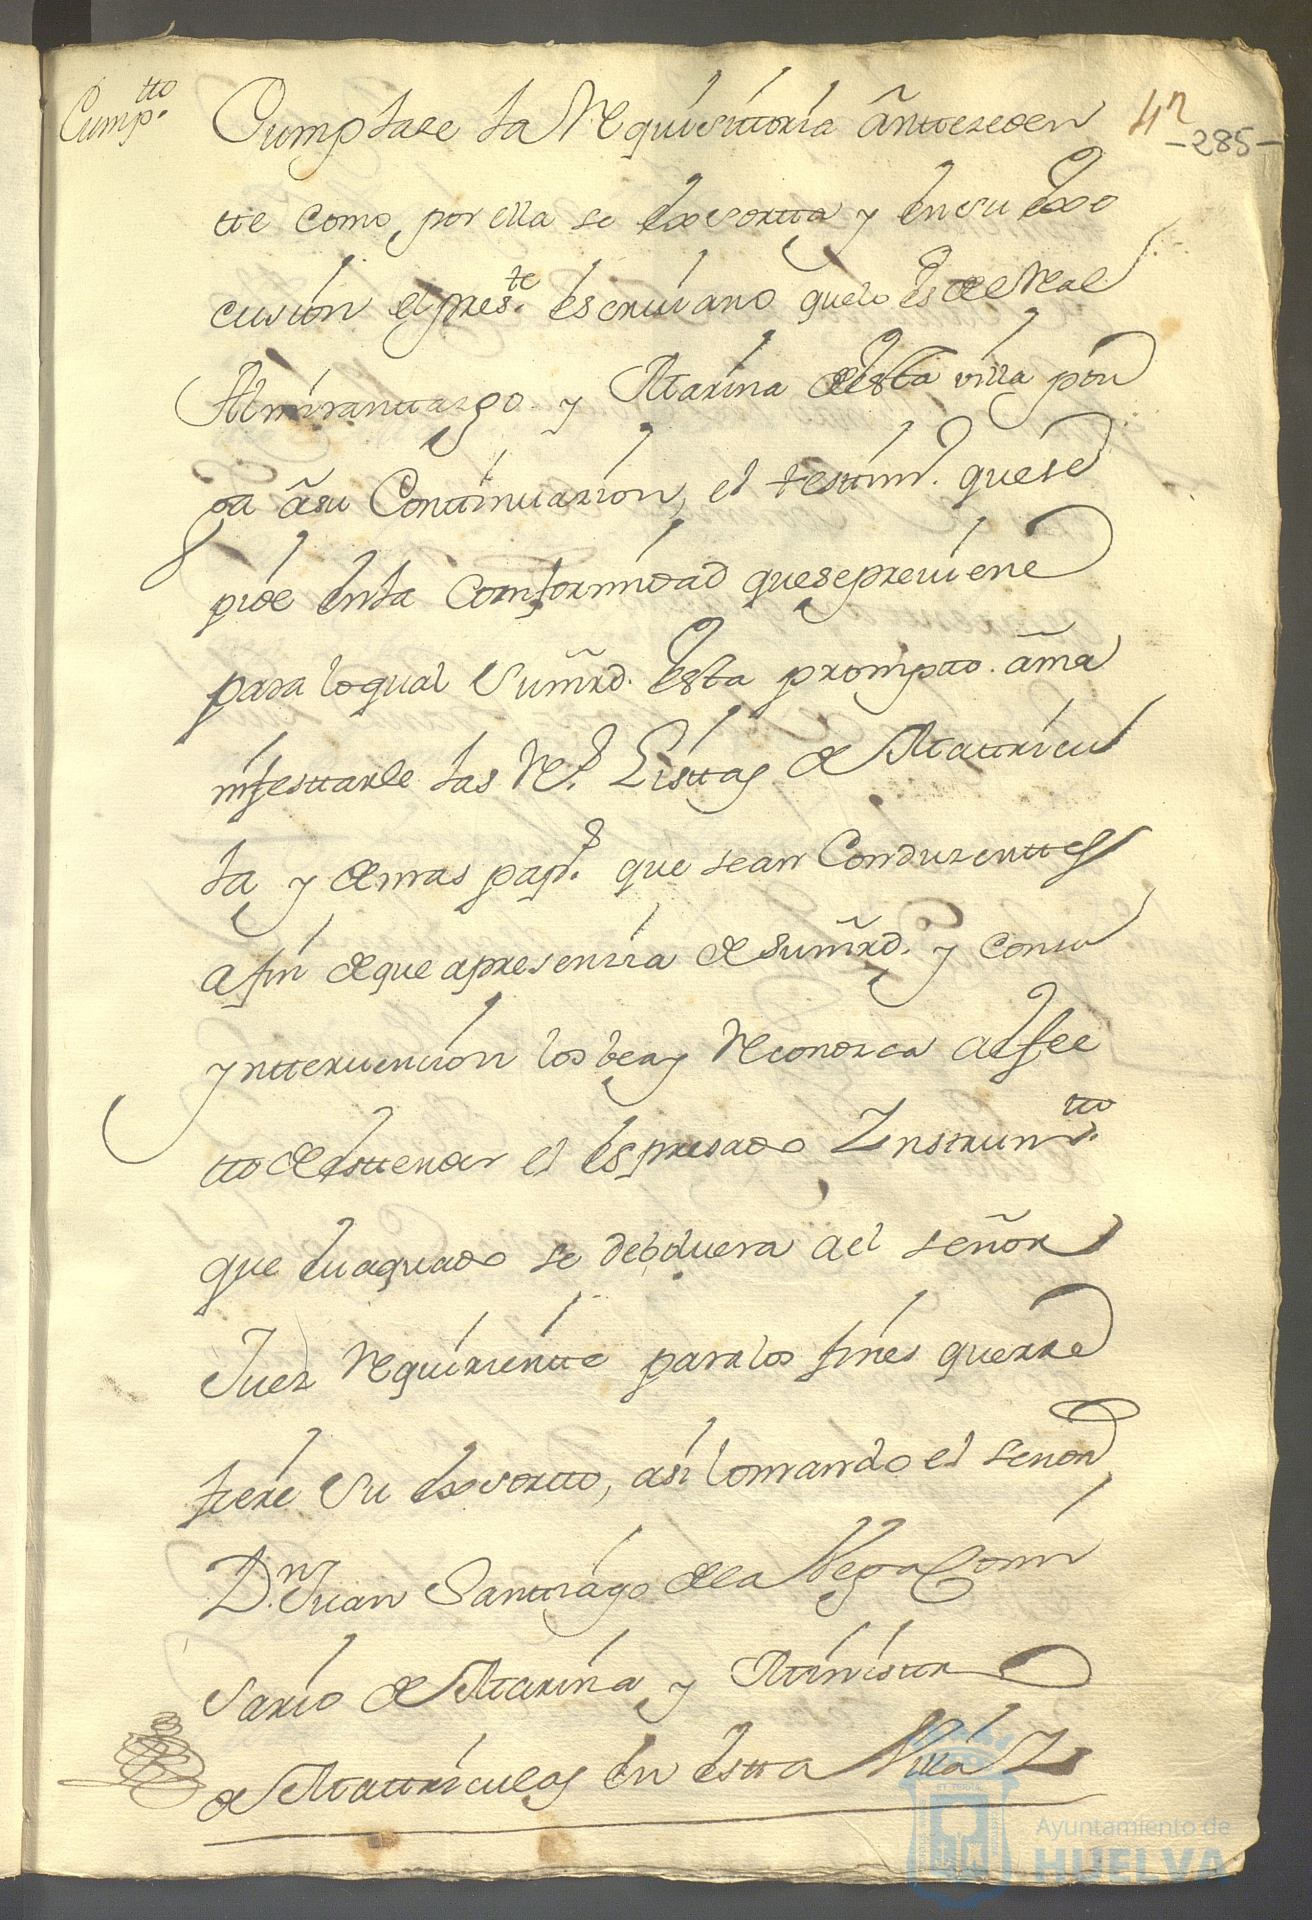 Cump.tto
Cumplase la Requisitoria antteceden
tte como por ella se exsortta y en su exe
cusion el pres.te escrivano que lo es de el Real
Almiranttazgo y Marina de esta villa pon
ga a su Continuazion, el testim.o que se
pide en la conformidad que se previene
para lo qual su mrd. esta prompto. a ma
nifesttarle las R.s Listtas de Mattricu
la y demas pap.s que sean Conduzenttes
a fin de que a presenzia de su mrd. y con su
ynttervencion los bea y Reconozca a efec
tto de esttender el espresado Instrum.tto
que evaquado se debolvera a el señor
Juez Requirientte para los fines que rre
fiere su exsortto, asi lo mando el señor
D.n Juan Santtiago de la Vega Comi
sario de Marina y Ministtro
de Mattriculas en estta Villa
47
-285-
Ayuntamiento de
HUELVA